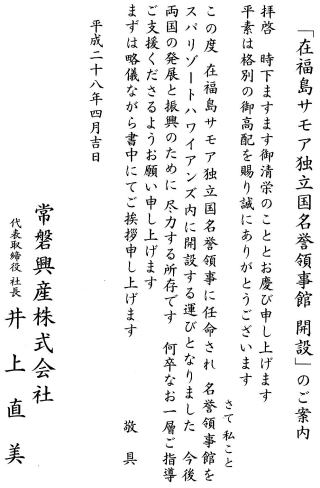 「在福島サモア独立国名誉領事館 開設」のご案内
拝啓　時下ますます御清栄のこととお慶び申し上げます
平素は格別の御高配を賜り誠にありがとうございます
さて 私こと
この度 在福島サモア独立国名誉領事に任命され 名誉領事館を
スパリゾートハワイアンズ内に開設する運びとなりました　今後
両国の発展と振興のために 尽力する所存です　何卒なお一層ご指導
ご支援くださるようお願い申し上げます
まずは略儀ながら書中にてご挨拶申し上げます
敬具
平成二十八年四月吉日
常磐興産株式会社
代表取締役 社長　井上直美